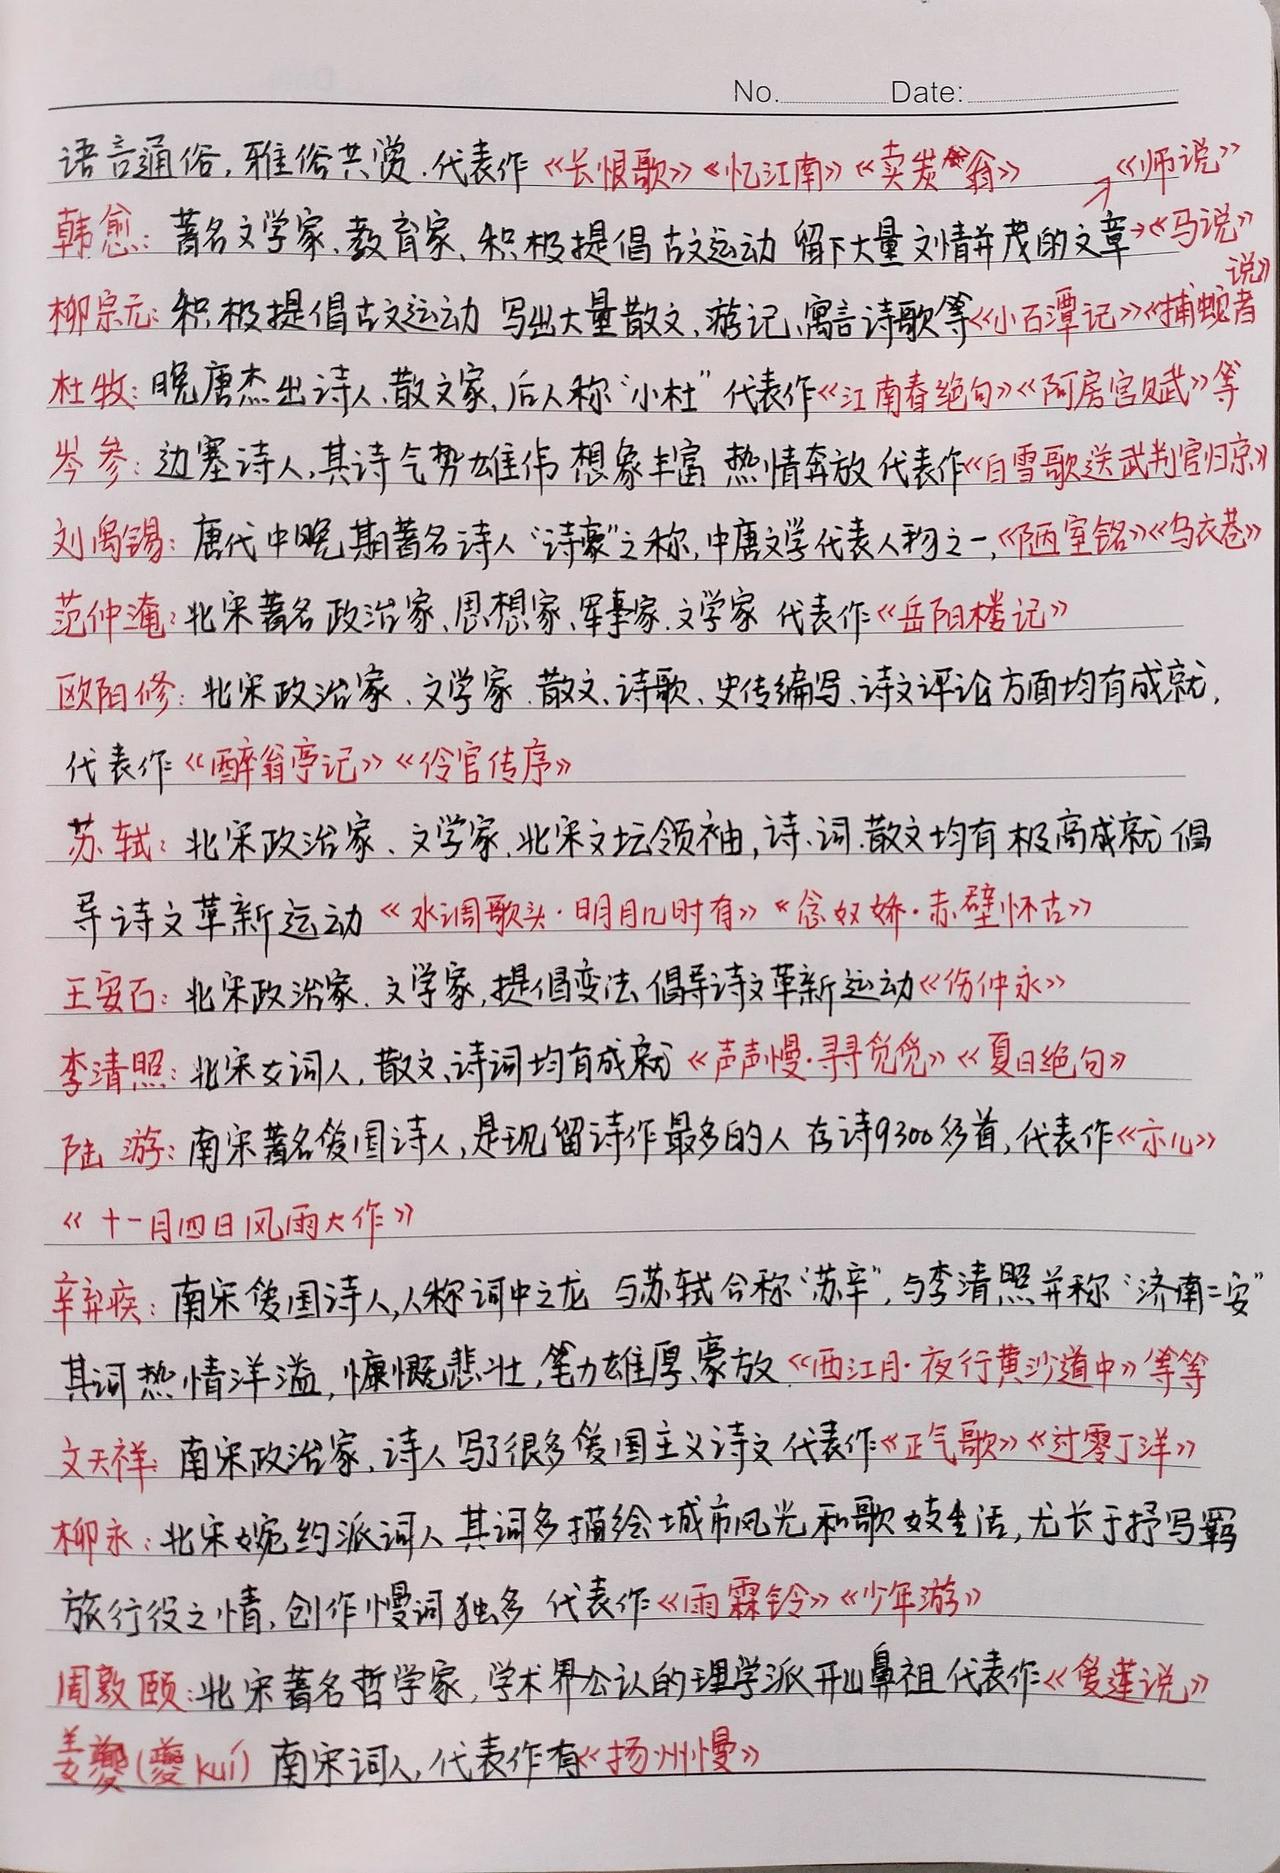 No. Date:
语言通俗,雅俗共赏.代表作《长恨歌》《忆江南》《卖炭翁》 《师说》
韩愈:著名文学家、教育家、积极提倡古文运动 留下大量文情并茂的文章→《马说》
柳宗元:积极提倡古文运动 写出大量散文、游记、寓言诗歌等《小石潭记》《捕蛇者说》
杜牧:晚唐杰出诗人、散文家、后人称“小杜”代表作《江南春绝句》《阿房宫赋》等
岑参:边塞诗人,其诗气势雄伟 想象丰富 热情奔放 代表作《白雪歌送武判官归京》
刘禹锡:唐代中晚期著名诗人“诗豪”之称,中唐文学代表人物之一,《陋室铭》《乌衣巷》
范仲淹:北宋著名政治家、思想家、军事家.文学家 代表作《岳阳楼记》
欧阳修:北宋政治家、文学家.散文、诗歌、史传编写、诗文评论方面均有成就,
代表作《醉翁亭记》《伶官传序》
苏轼:北宋政治家、文学家,北宋文坛领袖,诗.词.散文均有极高成就 倡
导诗文革新运动《水调歌头·明月几时有》《念奴娇·赤壁怀古》
王安石:北宋政治家、文学家,提倡变法 倡导诗文革新运动《伤仲永》
李清照:北宋女词人,散文、诗词均有成就《声声慢·寻寻觅觅》《夏日绝句》
陆游:南宋著名爱国诗人,是现留诗作最多的人 存诗9300多首,代表作《示儿》
《十一月四日风雨大作》
辛弃疾:南宋爱国诗人,人称词中之龙 与苏轼合称“苏辛”,与李清照并称“济南二安”
其词热情洋溢,慷慨悲壮,笔力雄厚、豪放《西江月·夜行黄沙道中》等等
文天祥:南宋政治家,诗人 写了很多爱国主义诗文 代表作《正气歌》《过零丁洋》
柳永:北宋婉约派词人 其词多描绘城市风光和歌妓生活,尤长于抒写羁
旅行役之情,创作慢词独多 代表作《雨霖铃》《少年游》
周敦颐:北宋著名哲学家,学术界公认的理学派开山鼻祖 代表作《爱莲说》
姜夔(夔kuí) 南宋词人,代表作有《扬州慢》